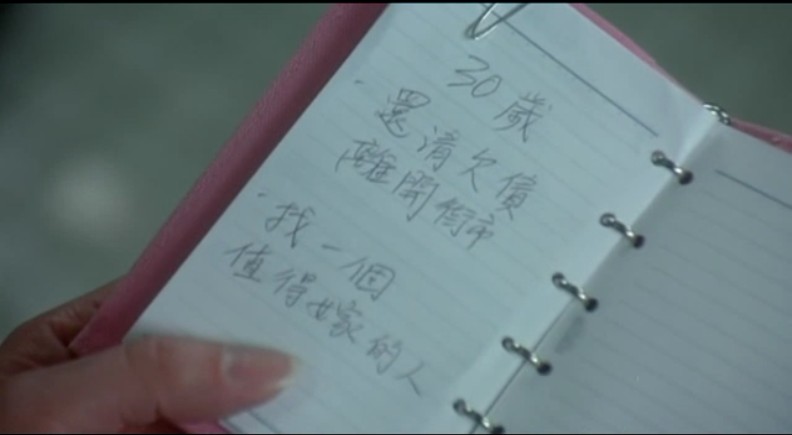 30歲
·還清欠債
離開街市
·找一個
值得嫁的人